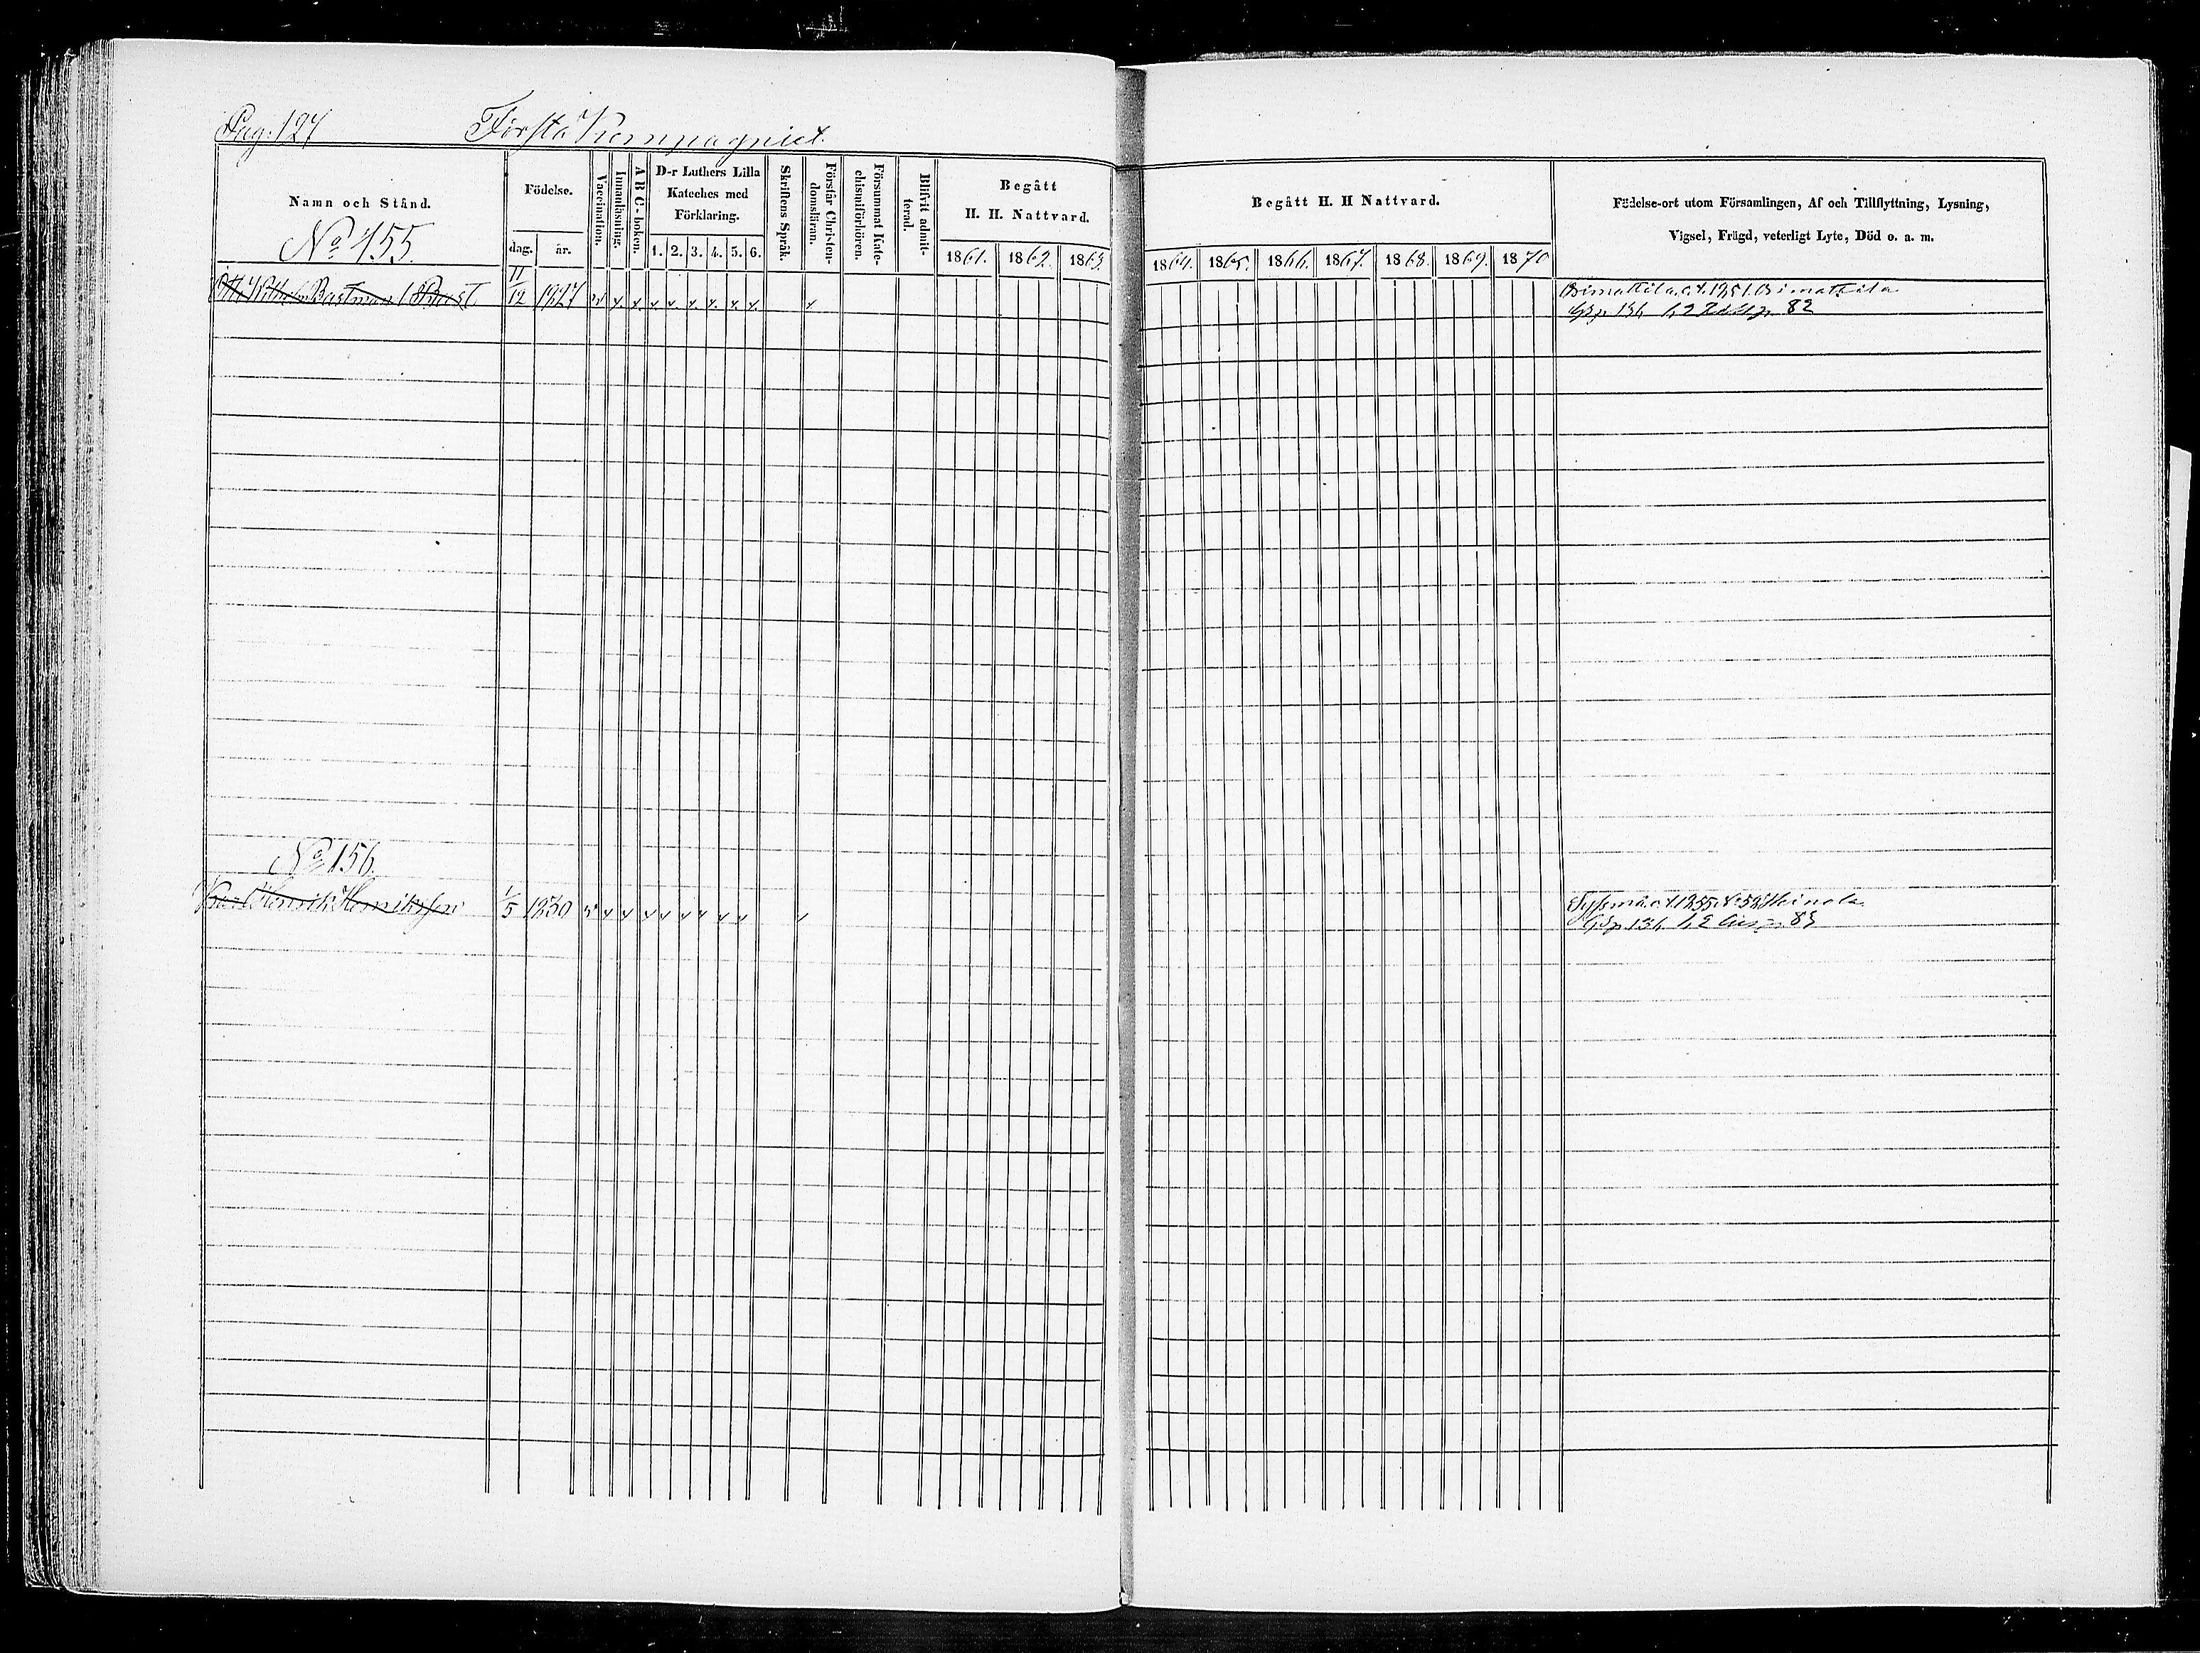 Pag. 127 Första Kompagniet.
Namn och Stånd. Födelse. Vaccination. Innanläsning. A B C-boken. D-r Luthers Lilla Kateches med Förklaring. Skriftens Språk. Förstår Christendomsläran. Försummat Katechismiförhören. Blifvit admitterad. Begått H. H. Nattvard. Begått H. H Nattvard. Födelse-ort utom Församlingen, Af och Tillflyttning, Lysning,
Vigsel, Frägd, veterligt Lyte, Död o. a. m.
dag. år. 1. 2. 3. 4. 5. 6. 1861. 1862. 1863. 1864. 1865. 1866. 1867. 1868. 1869. 1870
No 155
Wilhelm Bastman 11/12 1827 Orimattila 1851 Orimattila
82
No 156.
Karl Henrik Henriksson 1/5 1830 Sysmä 1855 Heinola
83